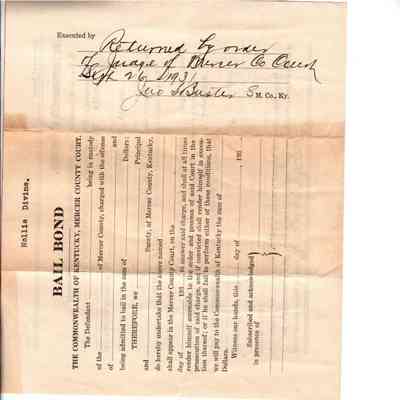 Executed by Returned by order
of Judge of Mercer Co Court
Sept 26 1931
Geo S Buster S M. Co., Ky.
Hollie Divine.
BAIL BOND
THE COMMONWEALTH OF KENTUCKY, MERCER COUNTY COURT.
The Defendant being in custody
of the of Mercer County, charged with the offense
of and
being admitted to bail in the sum of Dollars:
THEREFORE, we Principal
and Surety, of Mercer County, Kentucky,
do hereby undertake that the above named
shall appear in the Mercer County Court, on the
day of 193 , to answer said charge, and shall at all times
render himself amenable to the order and process of said Court in the
prosecution of said charge, and if convicted shall render himself in execu-
tion thereof; or if he shall fail to perform either of these conditions, that
we will pay to the Commonwealth of Kentucky the sum of
Dollars.
Witness our hands, this day of , 193
Subscribed and acknowledged
in presence of